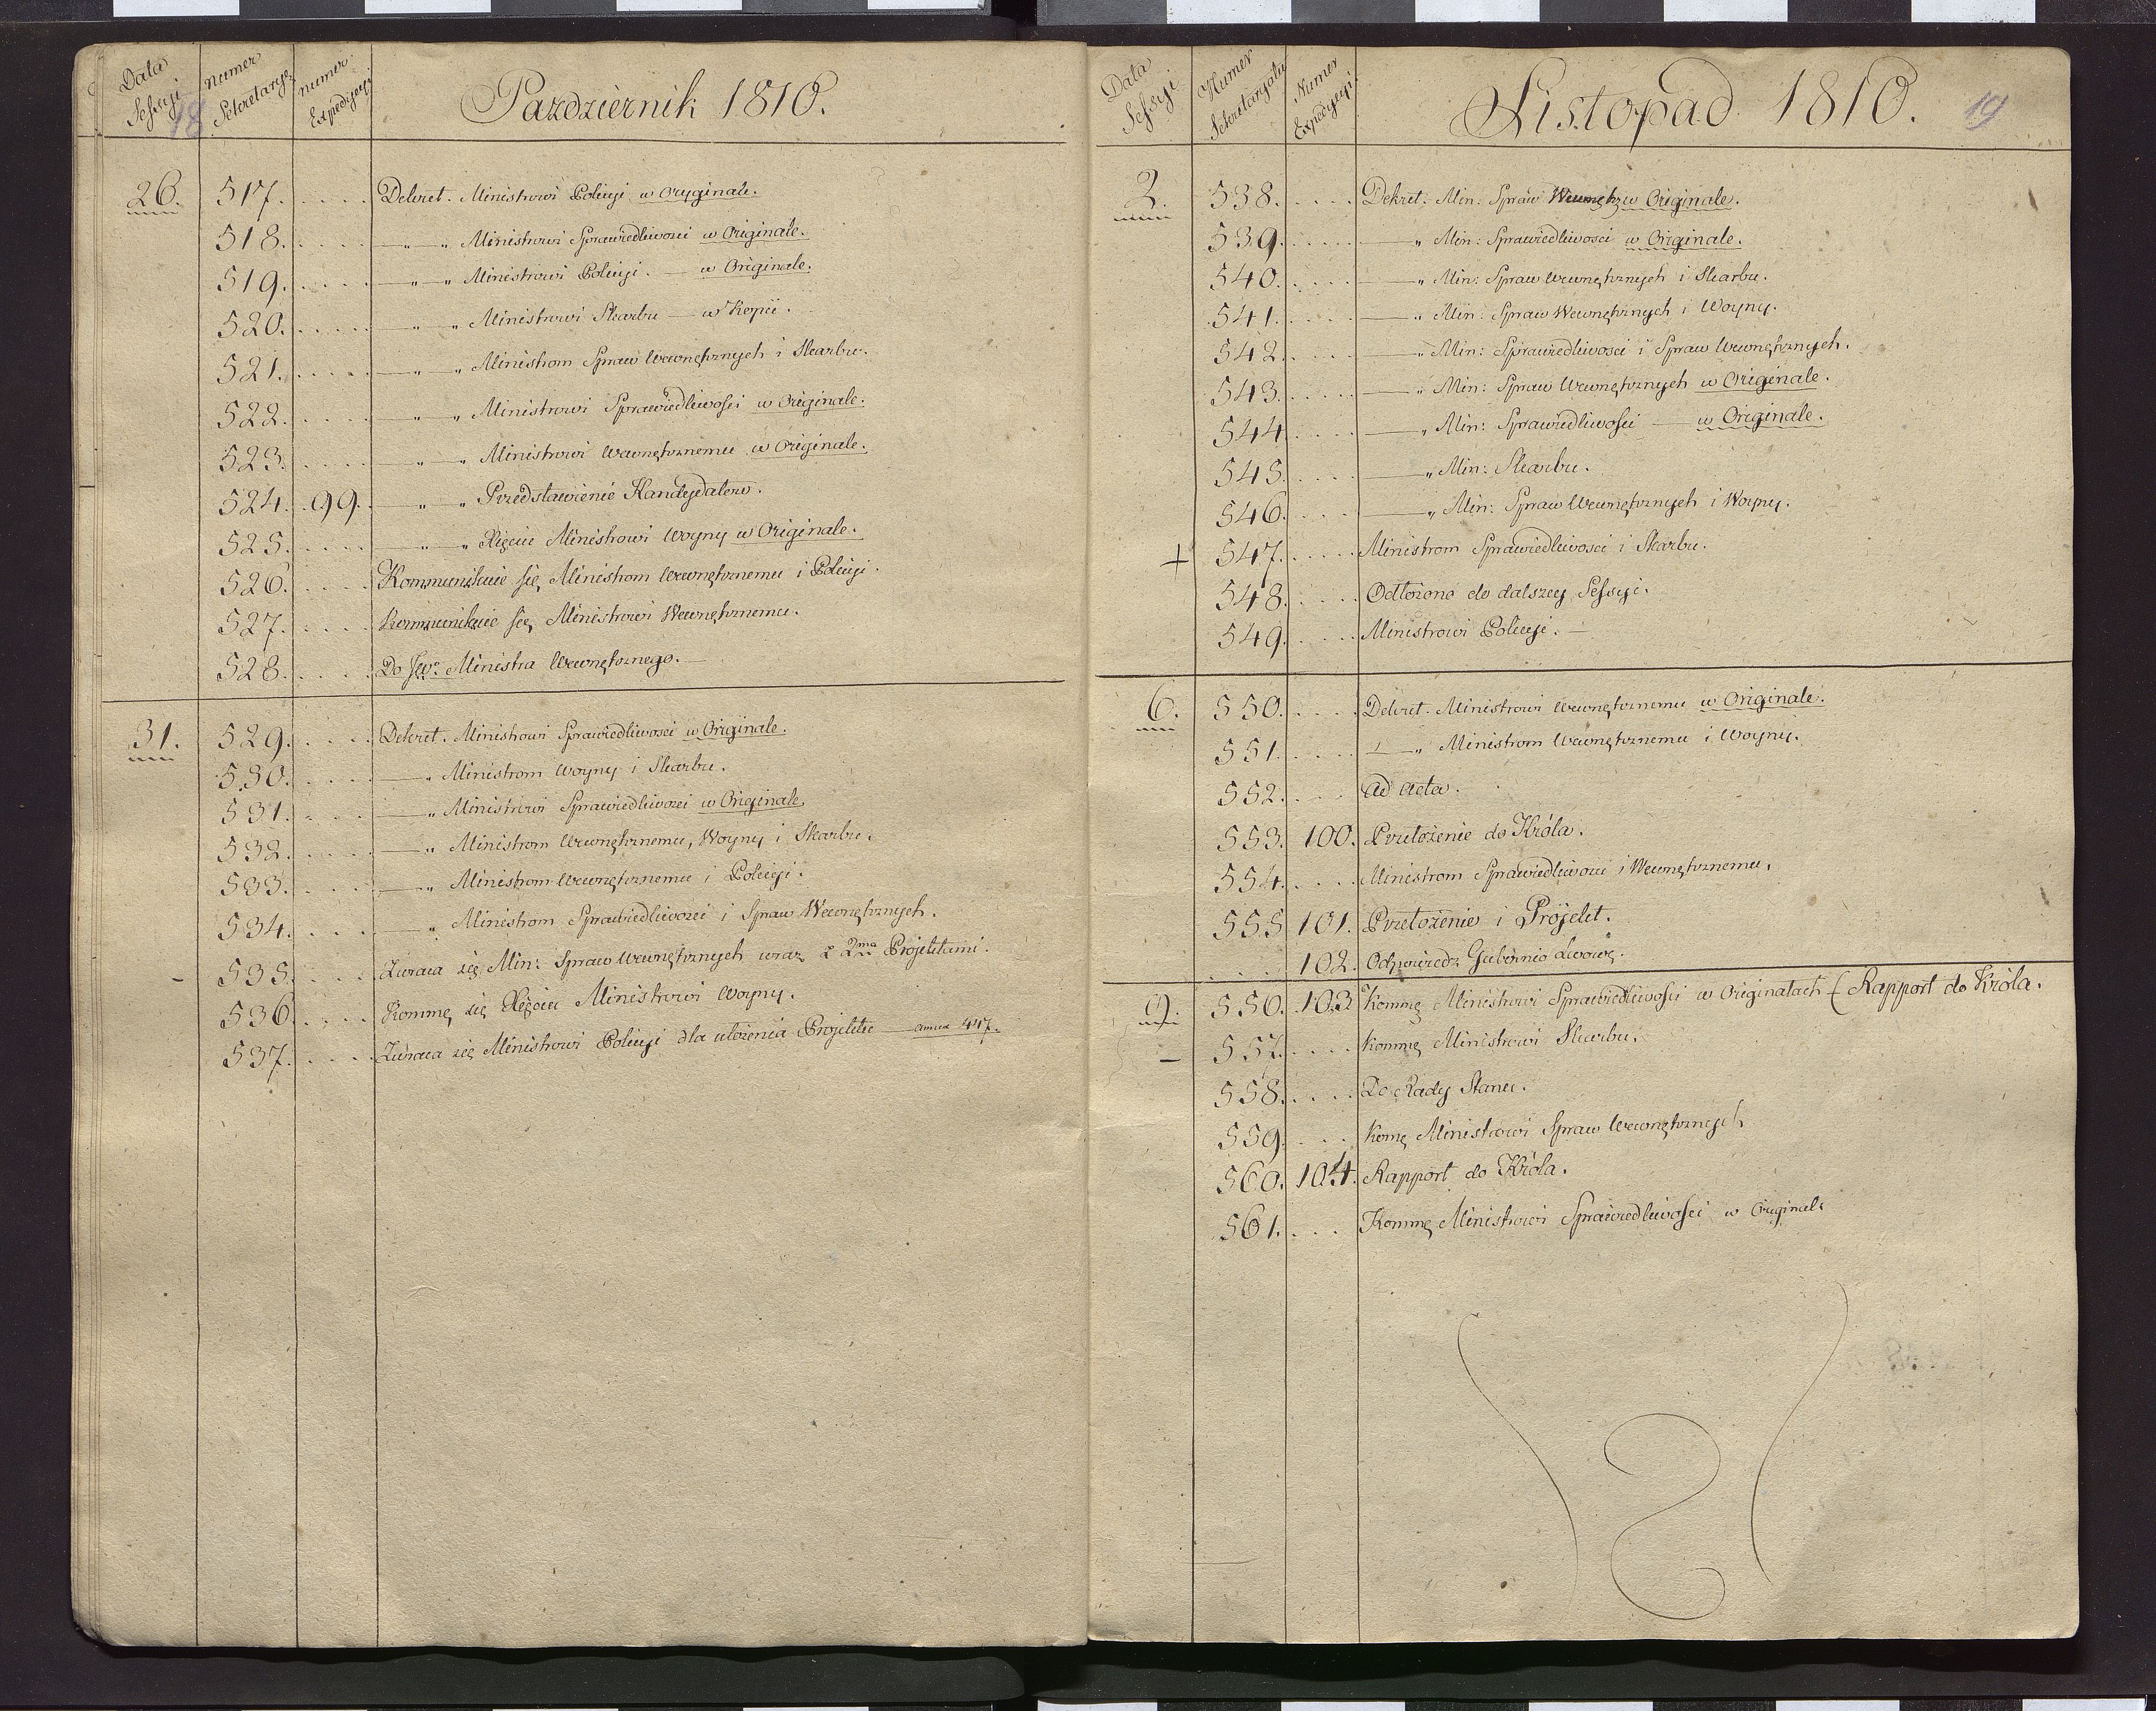 Data Sessyi
numer Sekretarya
numer Expedycyi
Pazdziernik 1810.
18
26. 517. .... Dekret. Ministrowi Policyi w Oryginale.
518. .... —„—„ Ministrowi Sprawiedliwosci w Originale.
519. .... —„—„ Ministrowi Policyi. — w Originale.
520. .... —„ „ Ministrowi Skarbu — w Kopii.
521. .... —„ „ Ministrom Spraw Wewnętrznych i Skarbu.
522. .... —„ „ Ministrowi Sprawiedliwości w Originale.
523. .... —„—„ Ministrowi Wewnętrznemu w Originale.
524. 99. —„ „ Przedstawienie Kandydatow.
525. .... —„—„ Xięciu Ministrowi Woyny w Originale.
526. .... Kommunikuie się Ministrom Wewnętrznemu i Policyi.
527. .... Kommunikuie się Ministrowi Wewnętrznemu.
528. .... Do Jwo. Ministra Wewnętrznego. —
31. 529. .... Dekret. Ministrowi Sprawiedliwosci w Originale.
530. .... —„ Ministrom Woyny i Skarbu.
531. .... —„ Ministrowi Sprawiedliwosci w Originale.
532. .... —„ Ministrom Wewnętrznemu, Woyny i Skarbu.
533. .... —„ Ministrom Wewnętrznemu i Policyi.
534. .... —„ Ministrom Sprawiedliwosci i Spraw Wewnętrznych.
- 535. .... Zwraca się Min: Spraw Wewnętrznych wraz z 2ma Projektami.
536. .... Kommę się Xięciu Ministrowi Woyny.
537. .... Zwraca się Ministrowi Policyi dla ułożenia Projektu — 447.
Data Sessyi
Numer Sekretaryatu
Numer Expedycyi
Listopad 1810.
19
2. 538. .... Dekret: Min: Spraw Wewnętrz w Originale.
539. .... —„ Min: Sprawiedliwosci w Originale.
540. .... —„ Min: Spraw Wewnętrznych i Skarbu.
541. .... —„ Min: Spraw Wewnętrznych i Woyny.
542. .... —„ Min: Sprawiedliwosci i Spraw Wewnętrznych.
543. .... —„ Min: Spraw Wewnętrznych w Originale.
544. .... —„ Min: Sprawiedliwości — w Originale.
545. .... —„ Min: Skarbu.
546. .... —„ Min: Spraw Wewnętrznych i Woyny.
+ 547. .... Ministrom Sprawiedliwosci i Skarbu.
548. .... Odłożono do dalszey Sessyi.
549. .... Ministrowi Policyi. —
6. 550. .... Dekret. Ministrowi Wewnętrznemu w Originale.
551. .... —„ Ministrom Wewnętrznemu i Woyny.
552. .... Ad Acta.
553. 100. Przełożenie do Króla.
554. .... Ministrom Sprawiedliwosci i Wewnętrznemu.
555 101. Przełożenie i Projekt.
.... 102. Odpowiedz Gubernio Lwows.
9. 556. 103 Kommę Ministrowi Sprawiedliwości w Originałach (Rapport do Króla.
- 557. .... Kommę Ministrowi Skarbu.
558. .... Do Rady Stanu.
559. .... Komę Ministrowi Spraw Wewnętrznych
560. 104. Rapport do Króla.
561. .... Kommę Ministrowi Sprawiedliwości w Original.